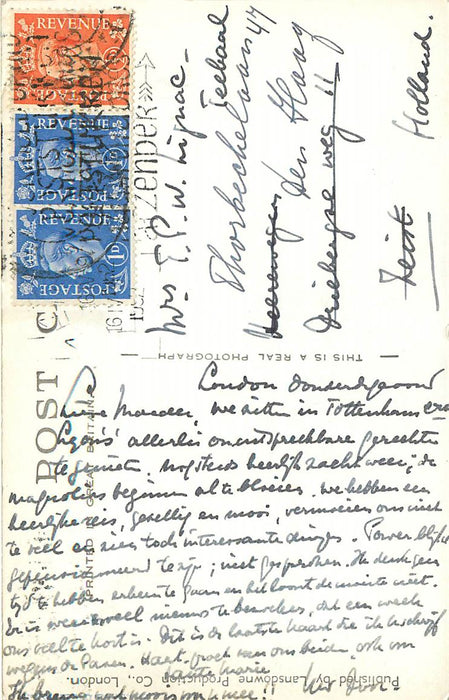 REVENUE
POSTAGE
REVENUE
1D
POSTAGE
REVENUE
1D
POSTAGE
Mrs E.P.W. Lignac-
Teebaal
Thorbeckelaan 47
Den Haag
Driebergse weg 11
Zeist
Holland.
THIS IS A REAL PHOTOGRAPH
POST C
PRINTED GREAT BRITAIN
Published by Lansdowne Production Co., London.
London Donderdagavond
Lieve Moeder, We zitten in Tottenham
Lyons' allerlei onuitsprekbare gerechten
te genieten. nog steeds heerlijk zacht weer; de
magnolia's beginnen al te bloeien. We hebben een
heerlijke reis, gezellig en mooi, vermoeien ons niet
te veel en zien toch interessante dingen. Power blijkt
gepensionneerd te zijn; niet gesproken. Ik denk geen
tijd te hebben erheen te gaan en het loont de moeite niet.
Er is weer veel nieuws te bezoeken, dat een week
ons veel te kort is. Dit is de laatste kaart die ik schrijf
wegens de Pasen. Hart. groet van ons beiden ook om
Marie
Ik breng wat moois mee !!